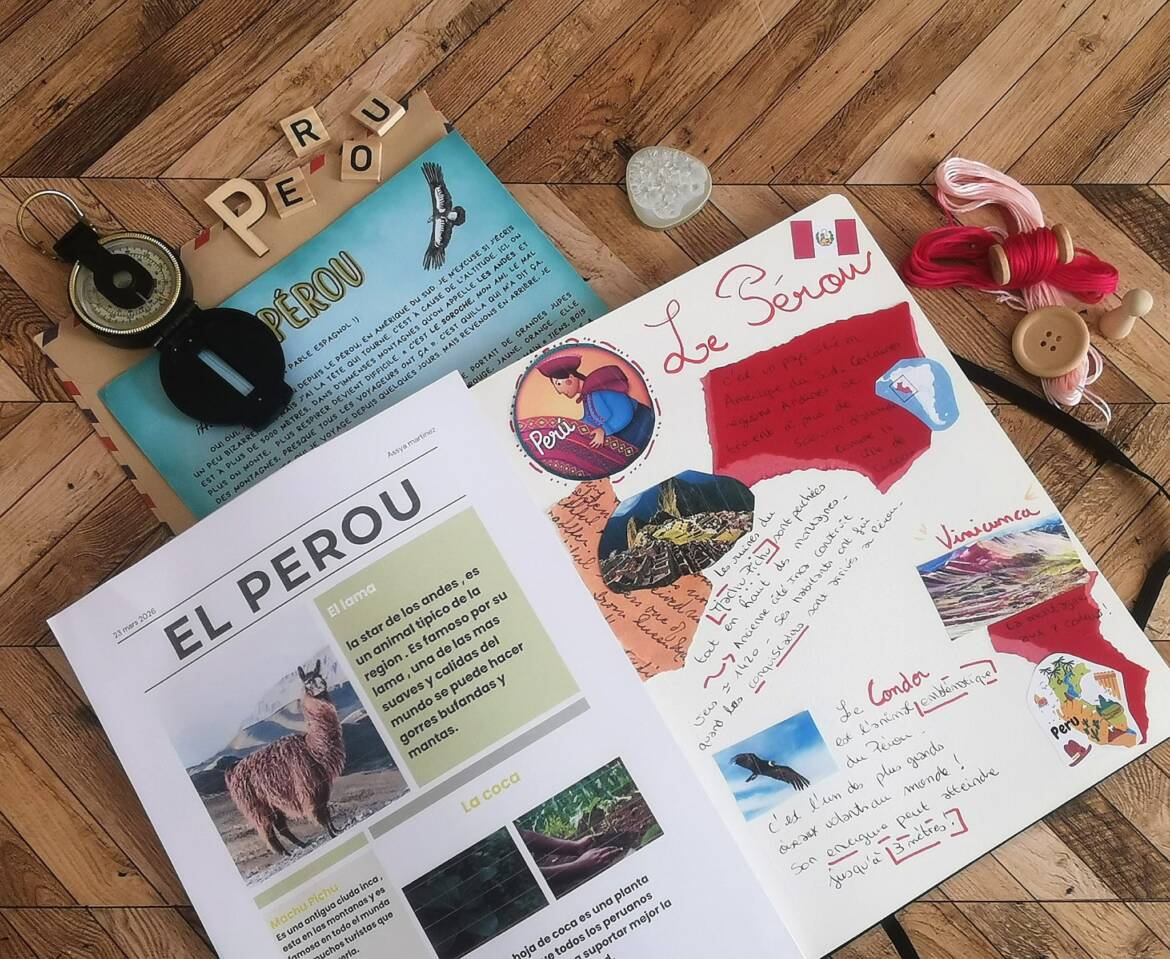 R U
P E O
PÉROU
PARLE ESPAGNOL !)
DEPUIS LE PÉROU, EN AMÉRIQUE DU SUD. JE M'EXCUSE SI J'ÉCRIS
J'AI LA TÊTE QUI TOURNE, C'EST À CAUSE DE L'ALTITUDE. ICI, ON
UN PEU BIZARRE
EST À PLUS DE 3000 MÈTRES, DANS D'IMMENSES MONTAGNES QU'ON APPELLE LES ANDES ET
PLUS ON MONTE, PLUS RESPIRER DEVIENT DIFFICILE. « C'EST LE SOROCHE, MON AMI, LE MAL
DES MONTAGNES, PRESQUE TOUS LES VOYAGEURS ONT ÇA ». C'EST QUILLA QUI M'A DIT ÇA.
VOYAGE DEPUIS QUELQUES JOURS MAIS REVENONS EN ARRIÈRE. JE
PORTAIT DE GRANDES JUPES
JAUNE, ORANGE. ELLE
TIENS, BOIS
Assya martinez
23 mars 2026
EL PEROU
El lama
la star de los andes , es
un animal tipico de la
region . Es famoso por su
lama , una de las mas
suaves y calidas del
mundo se puede hacer
gorres bufandas y
mantas.
La coca
Machu Pichu
Es una antigua ciuda inca ,
esta en las montanas y es
famosa en todo el mundo
muchos turistas que
hoja de coca es una planta
que todos los peruanos
a suportar mejor la
Le Pérou
Perú
c'est un pays situé en
Amérique du sud. Certaines
régions
Les ruines du
Machu Pichu sont perchées
tout en haut des montagnes.
Ancienne cité Inca construit
vers ≈ 1420. Ses habitants ont fui
quand les conquistadors sont arrivés au Pérou.
Vinicunca
La montagne
aux 7 couleurs !
Peru
Le Condor
est l'animal emblématique
du Pérou.
c'est l'un des plus grands
oiseaux volants du monde !
Son envergure peut atteindre
jusqu'à 3 mètres.